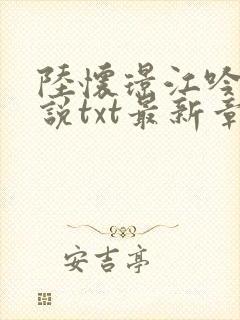 陸懷瑾江吟
說txt最新章
安吉亭